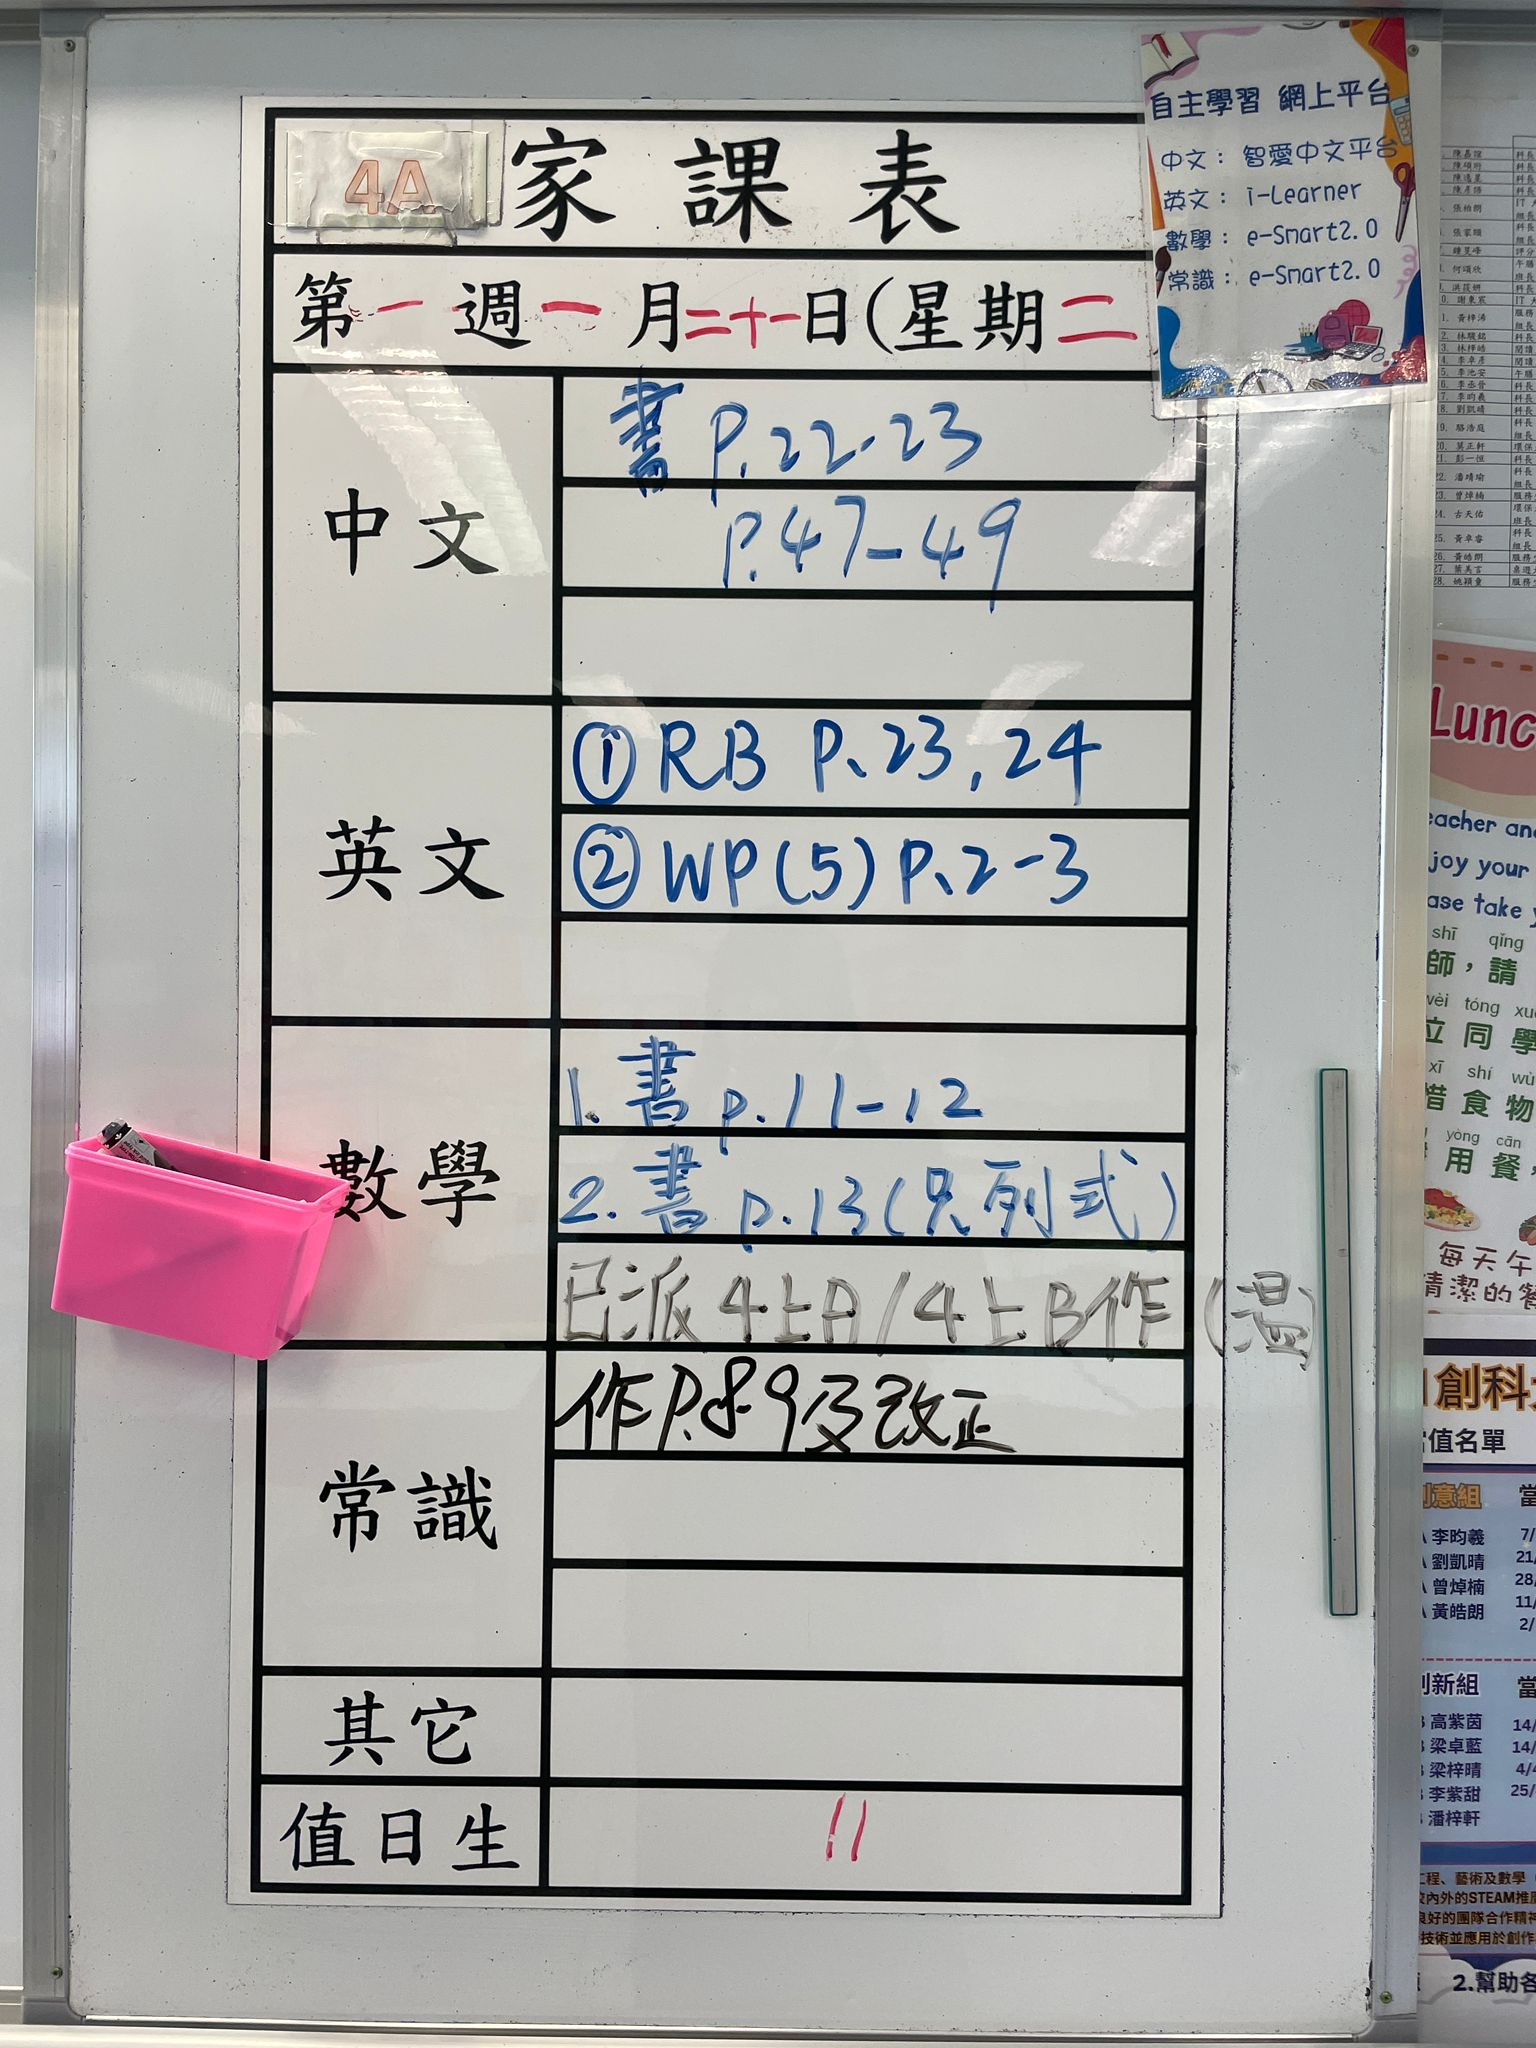 4A 家課表
第一週一月二十一日(星期二
中文
書 P.22-23
P.47-49
英文
① RB P.23,24
② WP(5) P.2-3
數學
1. 書 p.11-12
2. 書 p.13(只列式)
已派4上A/4上B作(溫)
常識
作P.8-9及改正
其它
值日生
11
自主學習 網上平台
中文: 智愛中文平台
英文: i-Learner
數學: e-Smart2.0
常識: e-Smart2.0
Lunc
eacher an
joy your
ase take y
shī qǐng
師,請
wèi tóng xué
位同學
xī shí wù
惜食物
yòng cān
用餐,
每天午
清潔的餐
創科
當值名單
創意組
李昀羲 7/
劉凱晴 21/
曾焯楠 28/
黃皓朗 11/
2/
創新組
高紫茵 14/
梁卓藍 14/
梁梓晴 4/4
李紫甜 25/
潘梓軒
工程、藝術及數學
校內外的STEAM推廣
良好的團隊合作精神
技術並應用於創作
2.幫助各